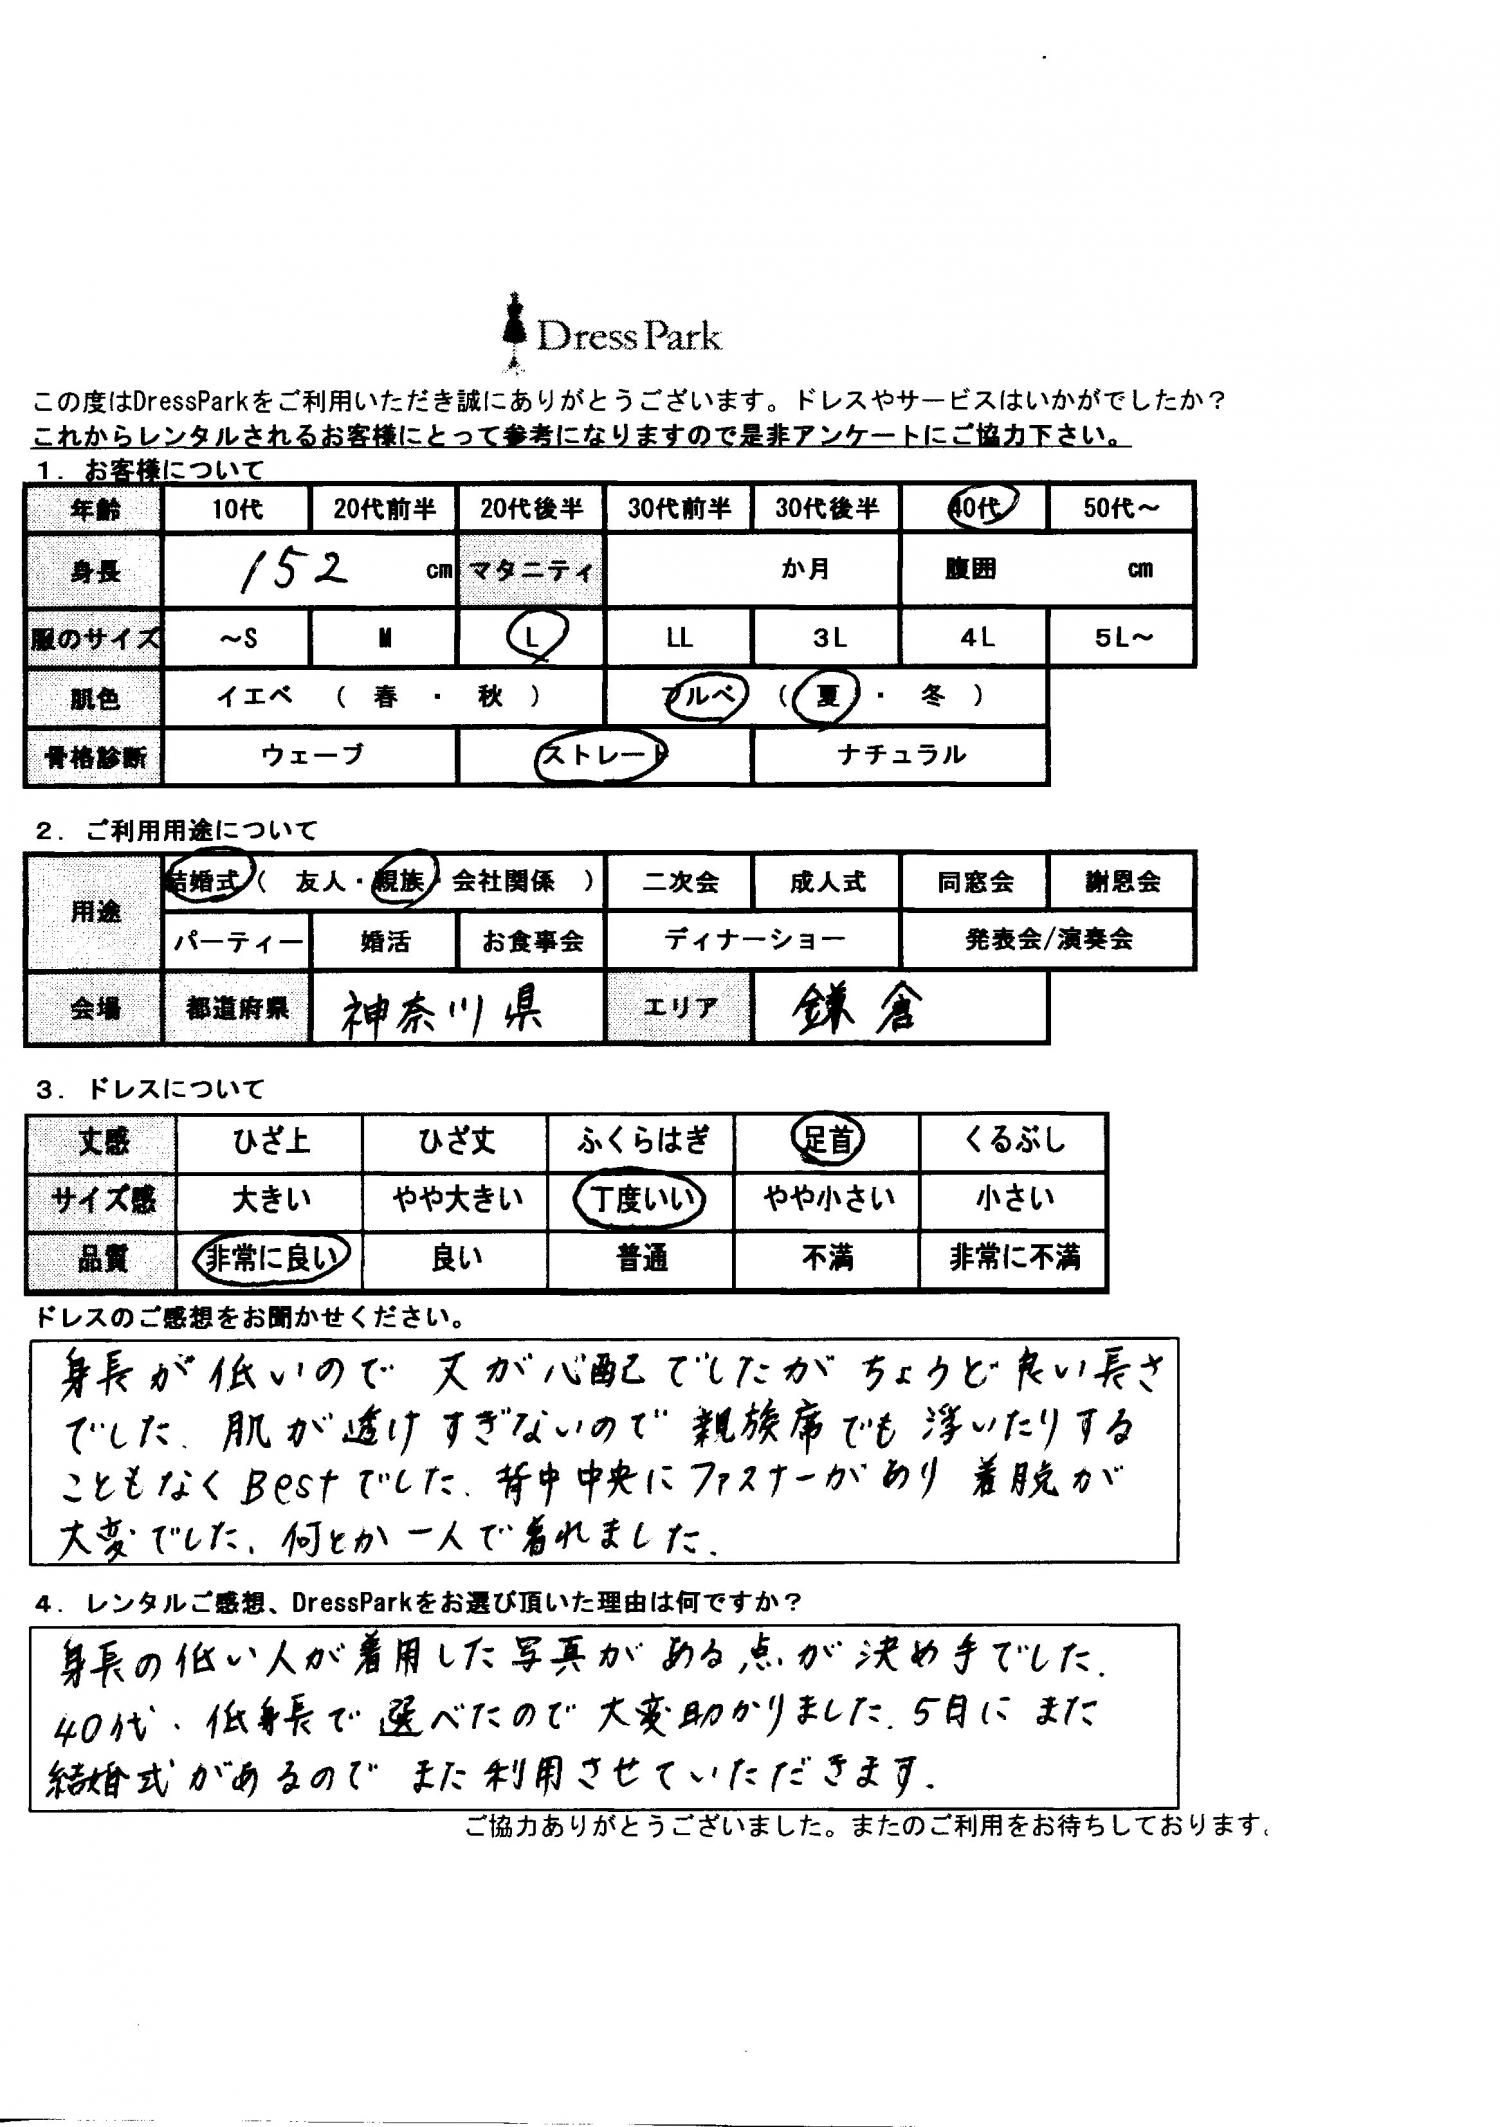 Dress Park
この度はDressParkをご利用いただき誠にありがとうございます。ドレスやサービスはいかがでしたか？
これからレンタルされるお客様にとって参考になりますので是非アンケートにご協力下さい。
１．お客様について
年齢 10代 20代前半 20代後半 30代前半 30代後半 40代 50代～
身長 152 cm マタニティ か月 腹囲 cm
服のサイズ ～S M L LL 3L 4L 5L～
肌色 イエベ （ 春 ・ 秋 ） ブルベ （ 夏 ・ 冬 ）
骨格診断 ウェーブ ストレート ナチュラル
２．ご利用用途について
用途 結婚式（ 友人・親族・会社関係 ） 二次会 成人式 同窓会 謝恩会
パーティー 婚活 お食事会 ディナーショー 発表会/演奏会
会場 都道府県 神奈川県 エリア 鎌倉
３．ドレスについて
丈感 ひざ上 ひざ丈 ふくらはぎ 足首 くるぶし
サイズ感 大きい やや大きい 丁度いい やや小さい 小さい
品質 非常に良い 良い 普通 不満 非常に不満
ドレスのご感想をお聞かせください。
身長が低いので 丈が心配でしたが ちょうど良い長さ
でした. 肌が透けすぎないので 親族席でも 浮いたりする
こともなくBestでした. 背中中央にファスナーがあり 着脱が
大変でした. 何とか一人で着れました.
４．レンタルご感想、DressParkをお選び頂いた理由は何ですか？
身長の低い人が着用した写真がある点が決め手でした.
40代、低身長で選べたので大変助かりました. 5月に また
結婚式があるので また利用させていただきます.
ご協力ありがとうございました。またのご利用をお待ちしております。